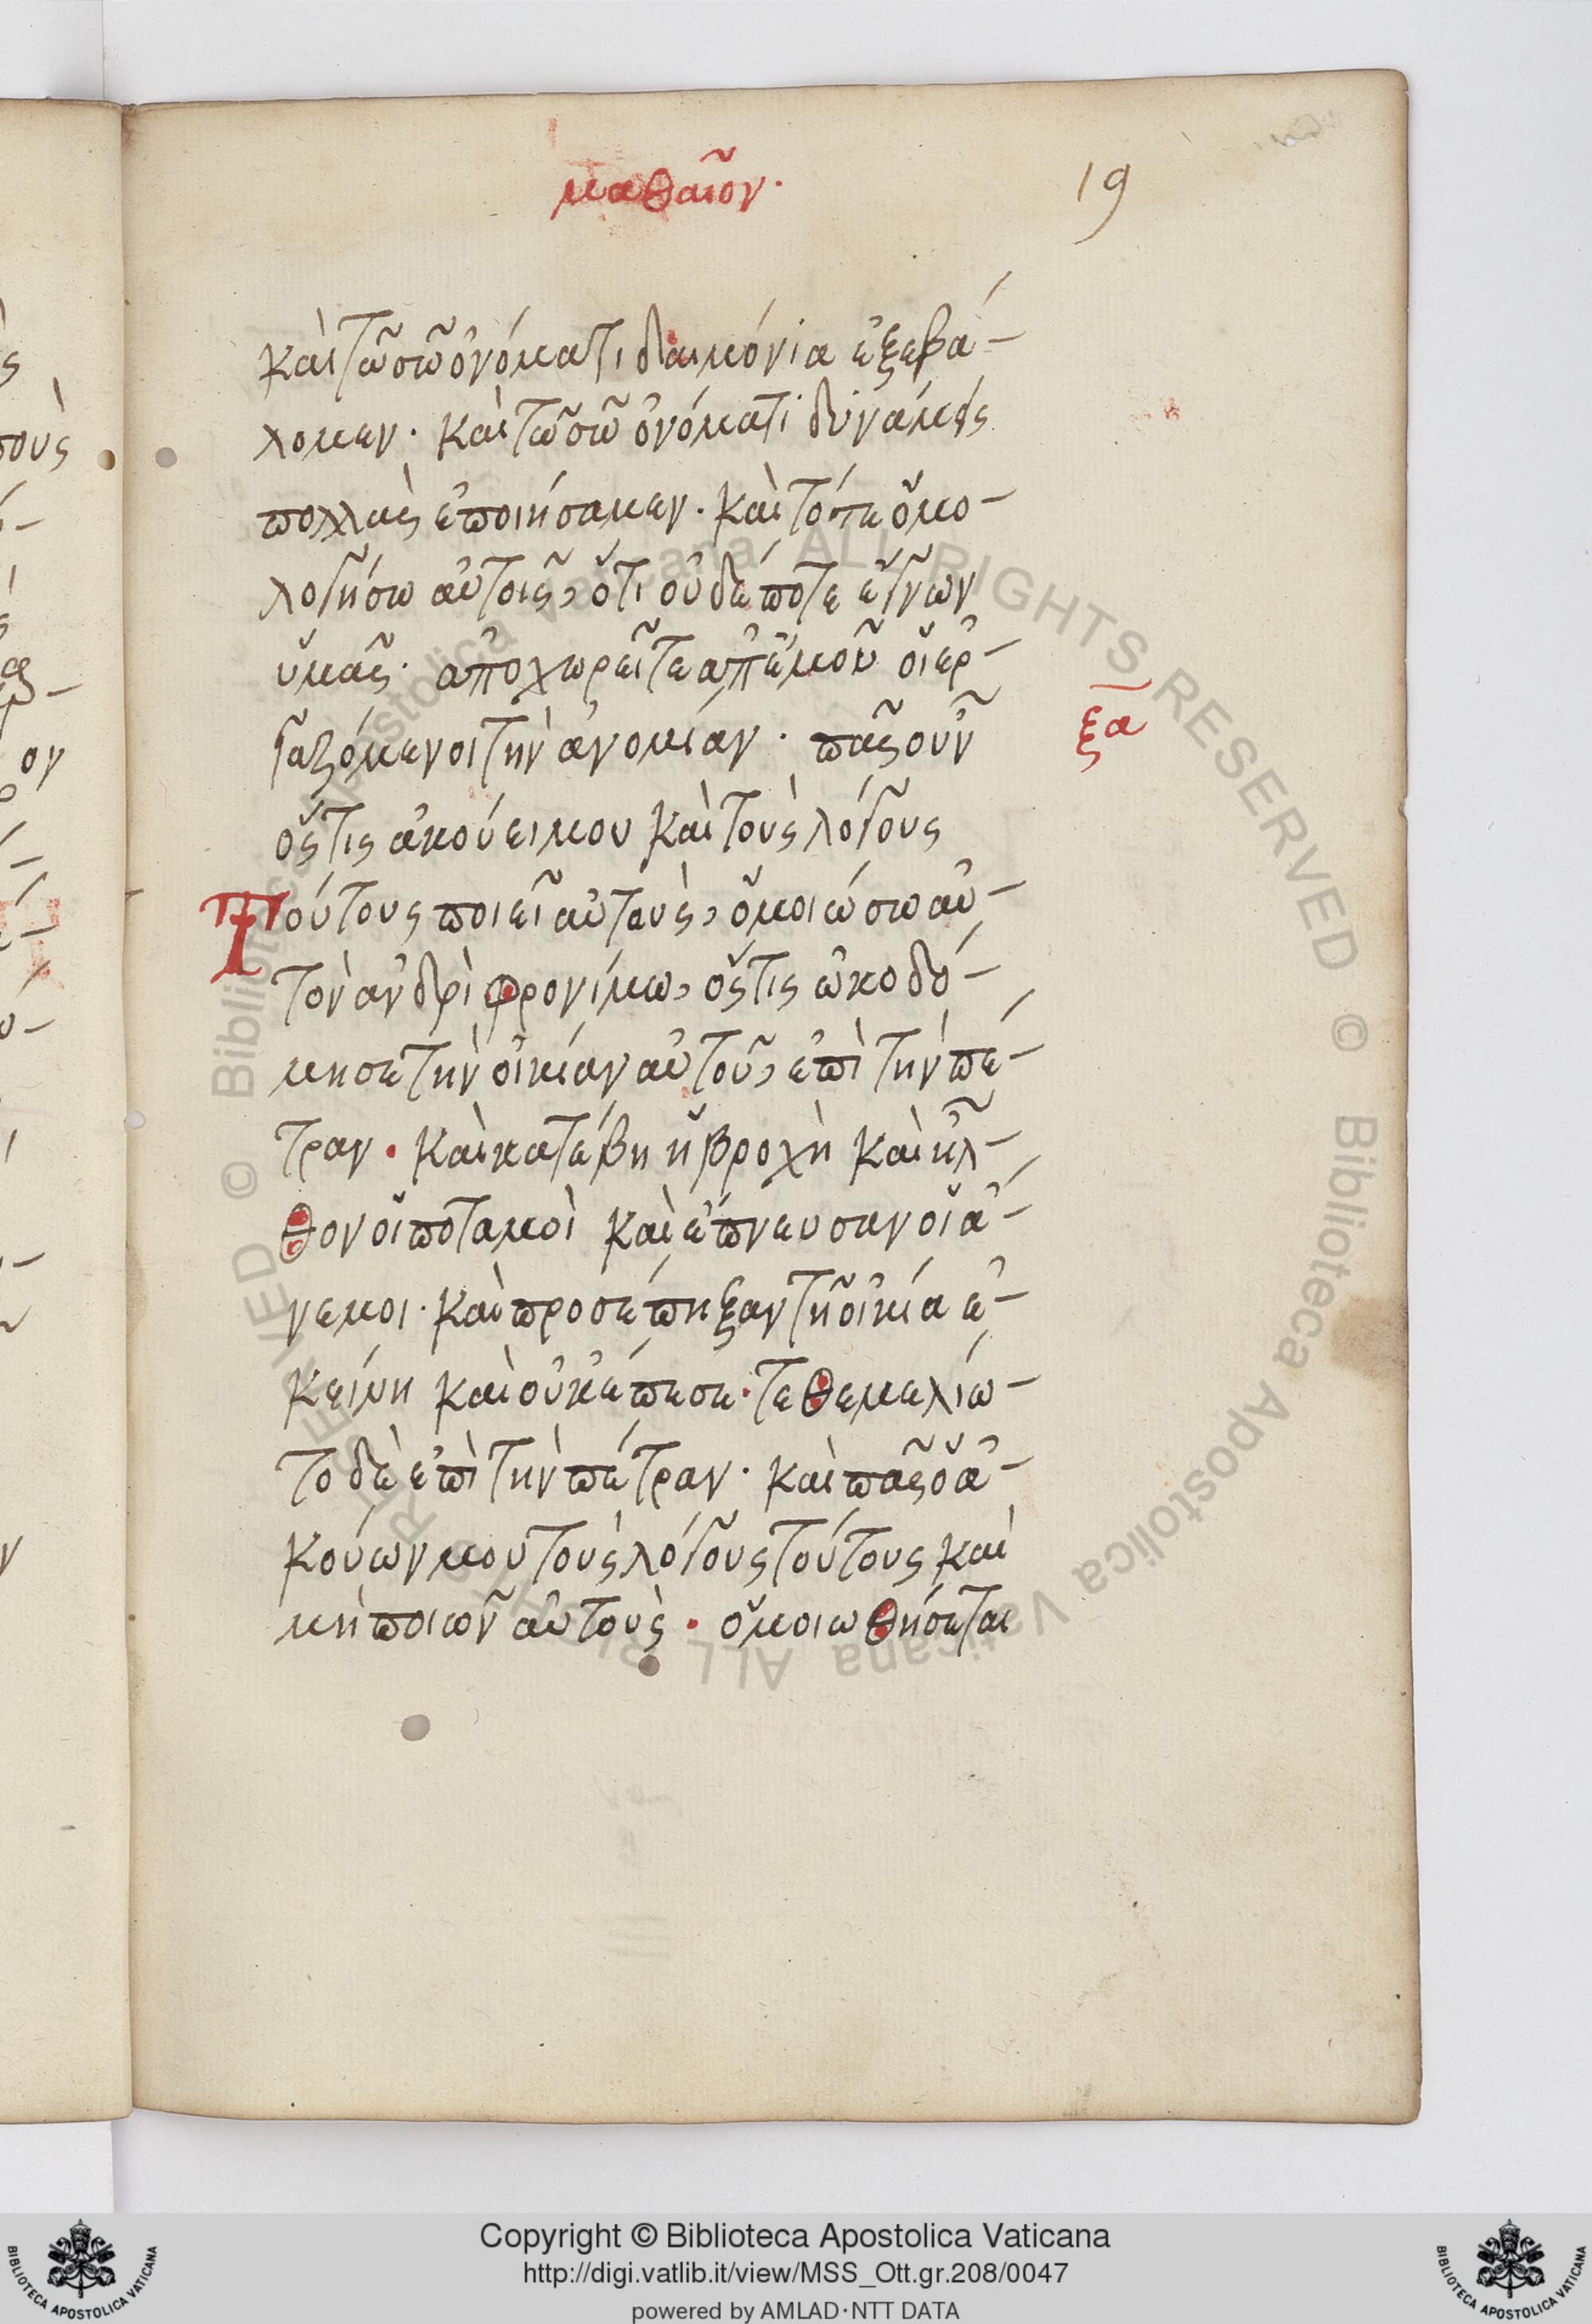 μαθαῖον·
19
καὶ τῶ σῶ ὀνόματι δαιμόνια ἐξεβά-
λομεν· καὶ τῶ σῶ ὀνόματι δυνάμεις
πολλὰς ἐποιήσαμεν· καὶ τότε ὁμο-
λογήσω αὐτοῖς, ὅτι οὐδέποτε ἔγνων
ὑμᾶς· ἀποχωρεῖτε ἀπ' ἐμοῦ οἱ ἐρ-
γαζόμενοι τὴν ἀνομίαν· πᾶς οὖν
ξα
ὅς τις ἀκούει μου καὶ τοὺς λόγους
τούτους ποιεῖ αὐτοὺς, ὁμοιώσω αὐ-
τὸν ἀνδρὶ φρονίμω, ὅς τις ὠκοδό-
μησε τὴν οἰκίαν αὐτοῦ, ἐπὶ τὴν πέ-
τραν· καὶ κατέβη ἡ βροχὴ καὶ ἦλ-
θον οἱ ποταμοὶ καὶ ἔπνευσαν οἱ ἄ-
νεμοι· καὶ προσέπηξαν τῆ οἰκία ἐ-
κείνη καὶ οὐκ έπεσε· τεθεμελίω-
το δὲ ἐπὶ τὴν πέτραν· καὶ πᾶς ὁ ἀ-
κούων μου τοὺς λόγους τούτους καὶ
μὴ ποιῶν αὐτοὺς· ὁμοιωθήσεται
© Biblioteca Apostolica Vaticana ALL RIGHTS RESERVED © Biblioteca Apostolica Vaticana ALL RIGHTS RESERVED
Copyright © Biblioteca Apostolica Vaticana
http://digi.vatlib.it/view/MSS_Ott.gr.208/0047
powered by AMLAD·NTT DATA
BIBLIOTECA APOSTOLICA VATICANA
BIBLIOTECA APOSTOLICA VATICANA